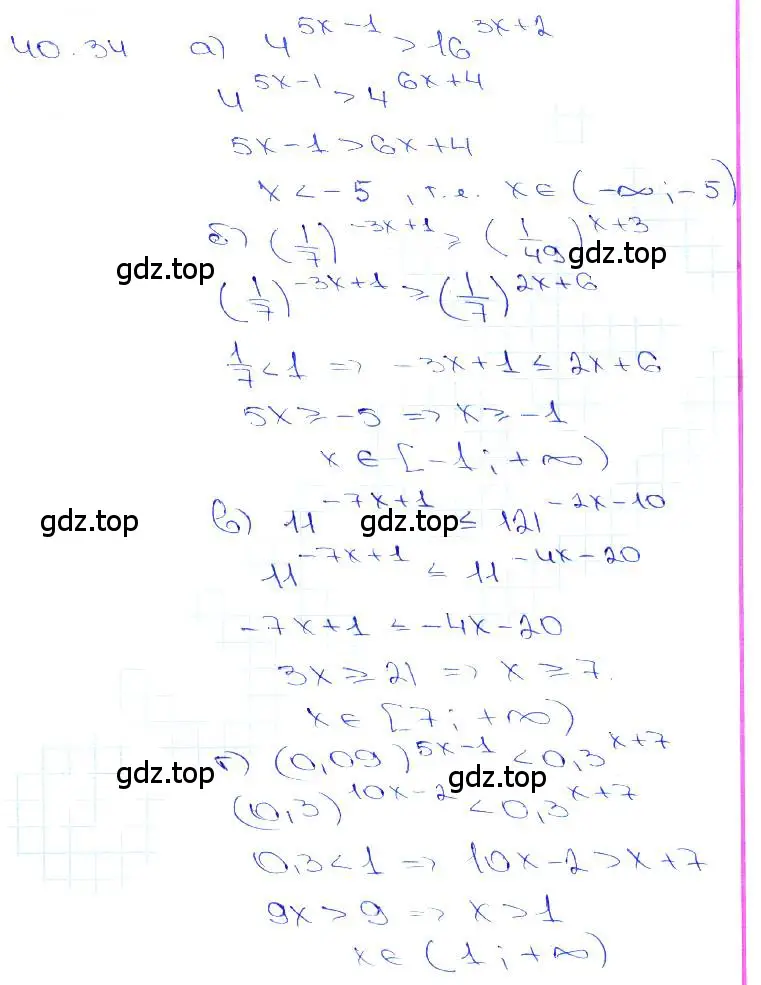 40.34 а) 4^{5x-1} > 16^{3x+2}
4^{5x-1} > 4^{6x+4}
5x-1 > 6x+4
x < -5, т.е. x ∈ (-∞; -5)
б) (1/7)^{-3x+1} ≥ (1/49)^{x+3}
gdz.top
gdz.top
(1/7)^{-3x+1} ≥ (1/7)^{2x+6}
1/7 < 1 => -3x+1 ≤ 2x+6
5x ≥ -5 => x ≥ -1
x ∈ [-1; +∞)
в) 11^{-7x+1} ≤ 121^{-2x-10}
gdz.top
gdz.top
11^{-7x+1} ≤ 11^{-4x-20}
-7x+1 ≤ -4x-20
3x ≥ 21 => x ≥ 7.
x ∈ [7; +∞)
г) (0,09)^{5x-1} < 0,3^{x+7}
gdz.top
gdz.top
(0,3)^{10x-2} < 0,3^{x+7}
0,3 < 1 => 10x-2 > x+7
9x > 9 => x > 1
x ∈ (1; +∞)